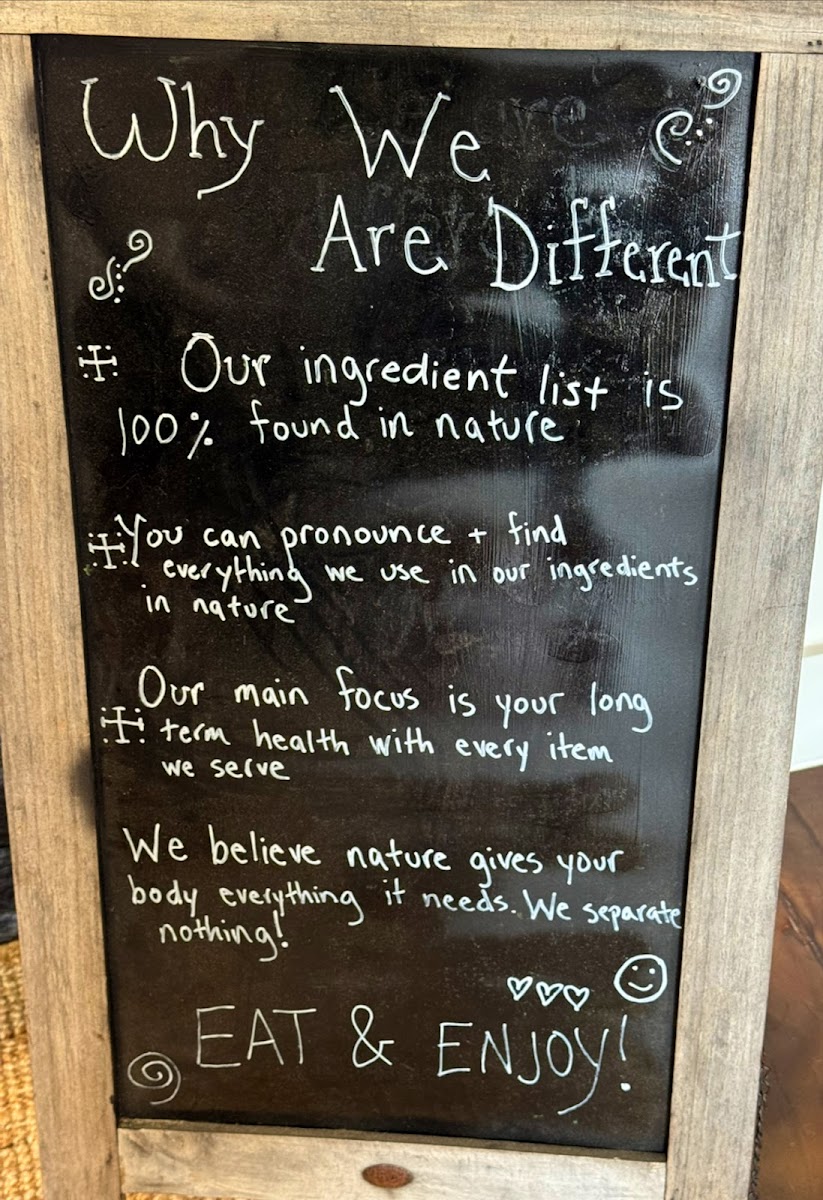 Why We
Are Different
Our ingredient list is
100% found in nature
You can pronounce + find
everything we use in our ingredients
in nature
Our main focus is your long
term health with every item
we serve
We believe nature gives your
body everything it needs. We separate
nothing!
EAT & ENJOY!